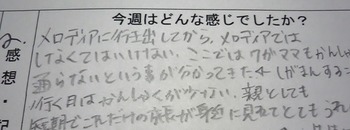 今週はどんな感じでしたか？
感想・記
メロディアに行き出してから、メロディアでは
しなくてはいけない。ここではワガママもかんしゃ
通らないという事が分かってきた
がまんする
行く日はかんしゃくが少ない。親としても
短期でこれだけの成長が身近に見れてとてもうれ